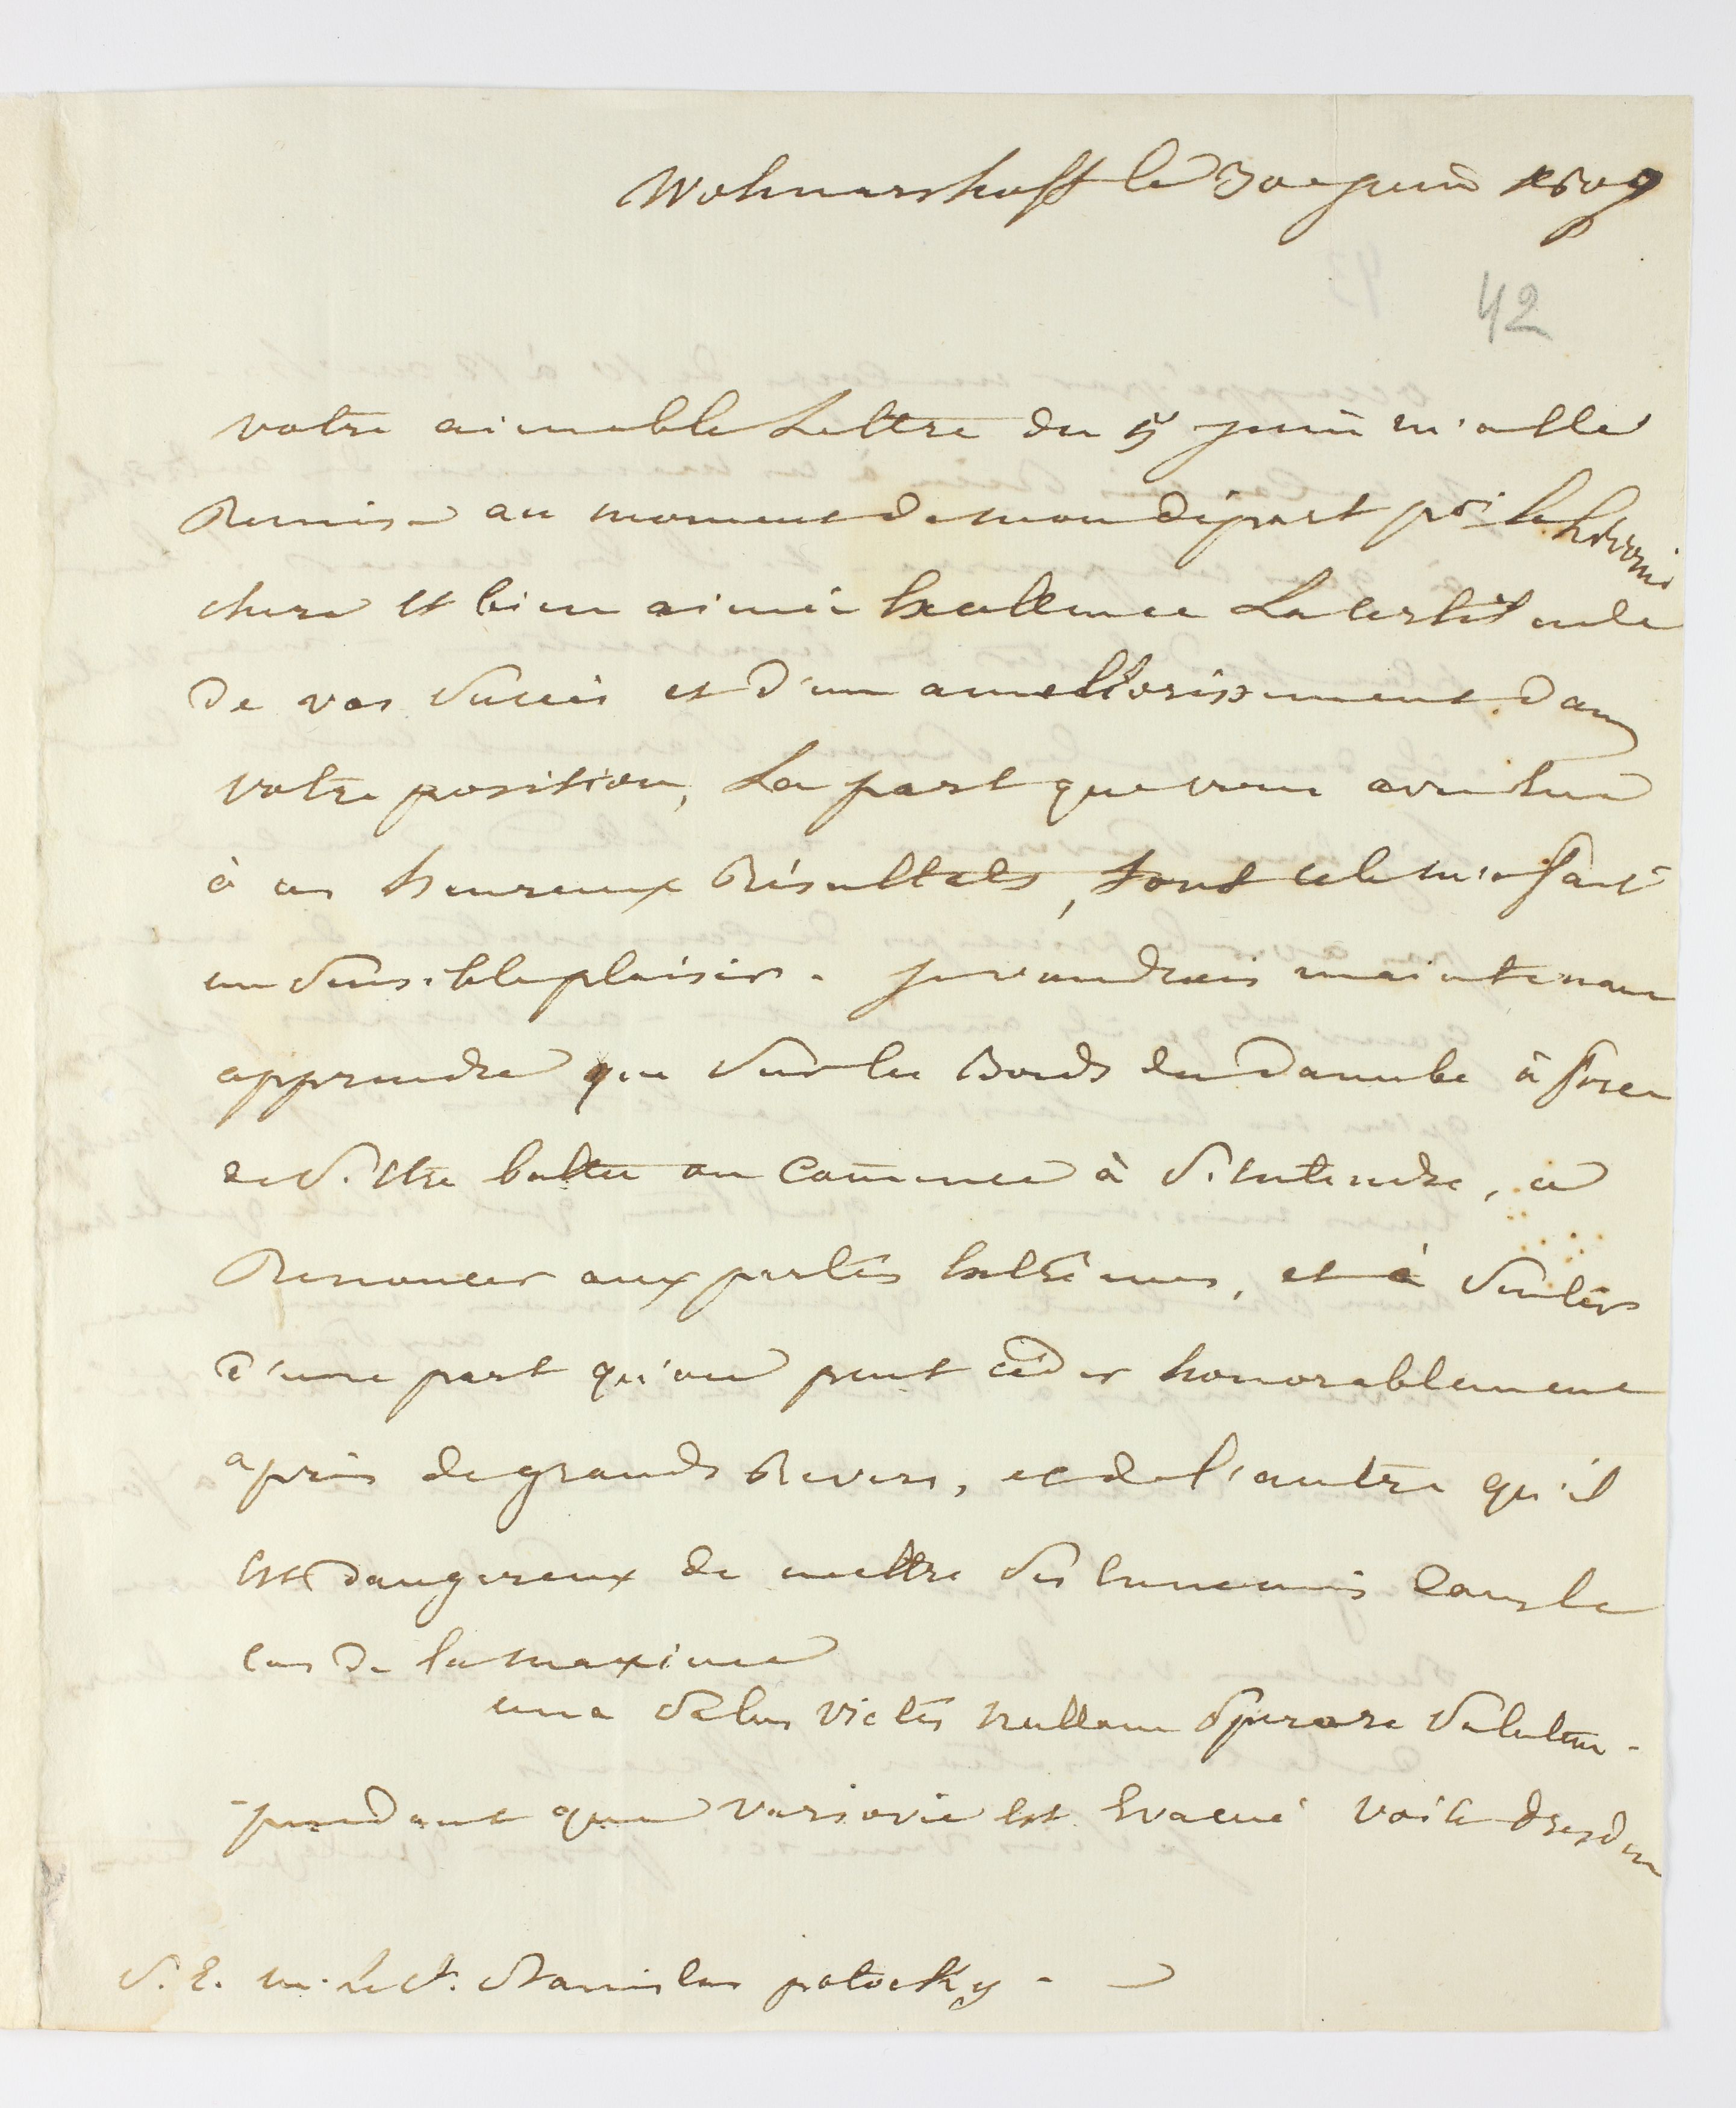 Wolmarshoff le 30 juin 1809
42
votre aimable Lettre du 5 juin m'a ete
Remise au moment de mon départ pr
chere et bien aimée Excellence La certitude
de vos Succès et d'un ameliorissement dans
votre position, La part que vous avez eue
à ces heureux Résultats, tout cela m'a fait
un Sensible plaisir. je voudrais maintenant
apprendre que Sur les Bords du Danube à force
de S'etre battu on commence à S'entendre, a
Renoncer aux partis Extrêmes, et à Sentir
d'une part qu'on peut céder honorablement
après de grands Revers, et de l'autre qu'il
Est dangereux de mettre Ses Ennemis dans le
cas de la maxime
una Salus victis nullam Sperare Salutem.
pendant que varsovie est Evacué voila dresden
S. E. m. Le C. Stanislas potocky -